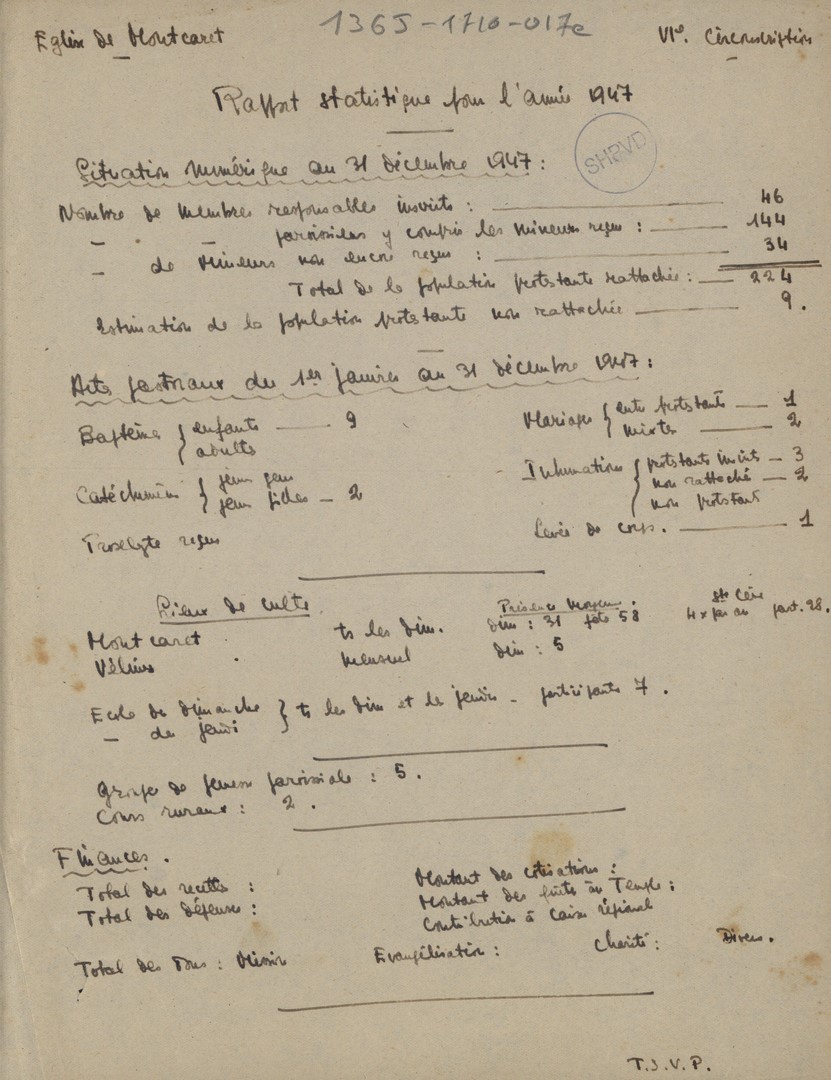 1365-1710-017e
Eglise de Montcaret VIe. Circonscription
Rapport statistique pour l'année 1947
SHPVD
Situation numérique au 31 décembre 1947 :
Nombre de membres responsables inscrits : 46
- - paroissiens y compris les mineurs reçus : 144
- de mineurs non encore reçus : 34
Total de la population protestante rattachée : 224
Estimation de la population protestante non rattachée 9.
Actes pastoraux du 1er janvier au 31 décembre 1947 :
Baptême { enfants 9
adultes
Mariages { entre protestants 1
mixtes 2
Catéchumènes { jeunes gens
jeunes filles - 2
Inhumations { protestants inscrits - 3
non rattaché - 2
non protestant
Proselyte reçus
Levée de corps. 1
Lieux de culte Présence Moyenne. Ste Cène
Montcaret ts les dim. dim : 31 fête 58 4 x par an part. 28.
Vélines mensuel dim : 5
Ecole du dimanche } ts les dim et les jeudis - participants 7.
- du jeudi
Groupe de jeunesse paroissiale : 5.
Cours ruraux : 2.
Finances.
Total des recettes : Montant des cotisations :
Total des dépenses : Montant des faites au Temple :
Contribution à Caisse régional
Total des Dons : Mission Evangélisation : Charité : Divers.
T.S.V.P.